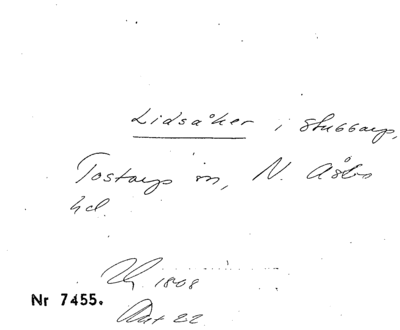 Lidsåker i Stubbarp,
Tostarps sn, N. Åsbo
hd.
1808
Nr 7455.
Akt 22